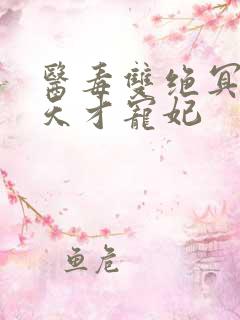 醫毒雙绝冥
天才寵妃
鱼危